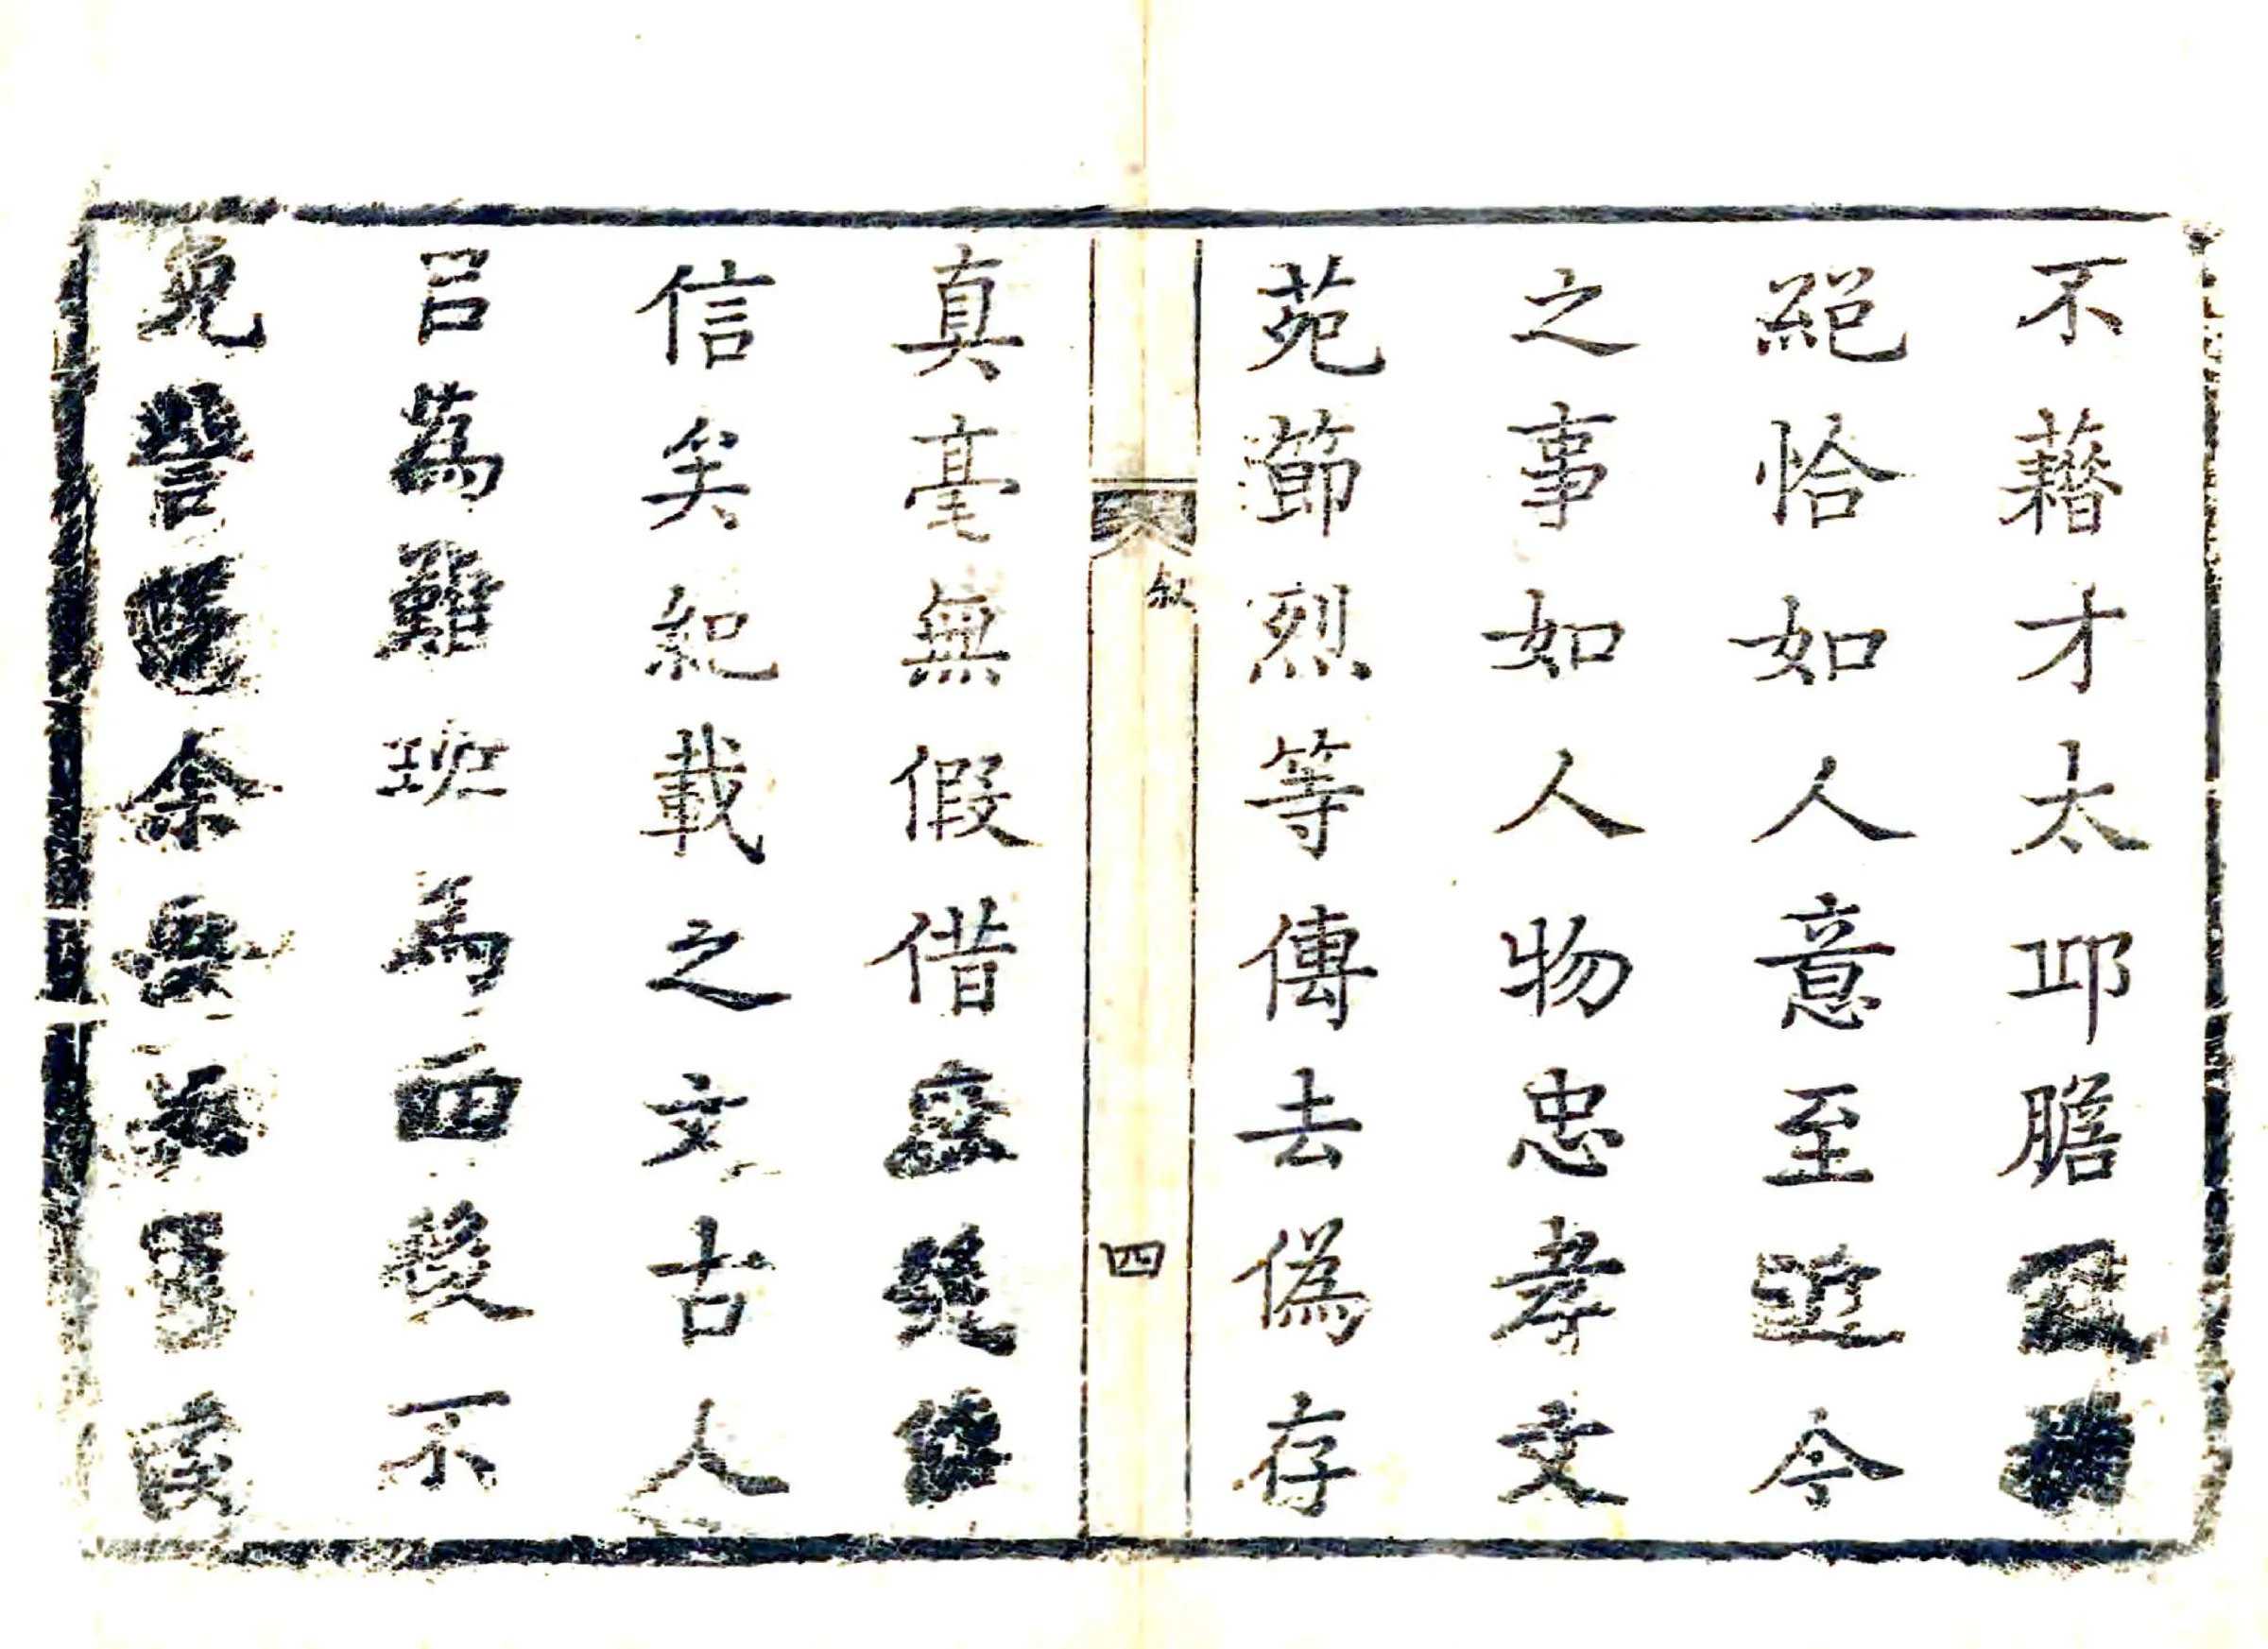 不藉才太邛膽
絕恰如人意至近今
之事如人物忠孝文
苑節烈等傳去偽存
叙
四
真毫無假借
信矣紀載之文古人
㠯為難班馬而不
免訾余